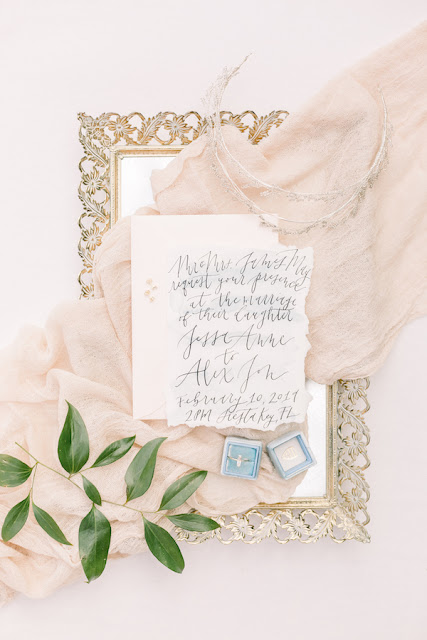 Mr & Mrs. James My
request your presence
at the marriage
of their daughter
Jessa Anne
to
Alex Jon
February 10, 2017
2PM Siesta Key, FL